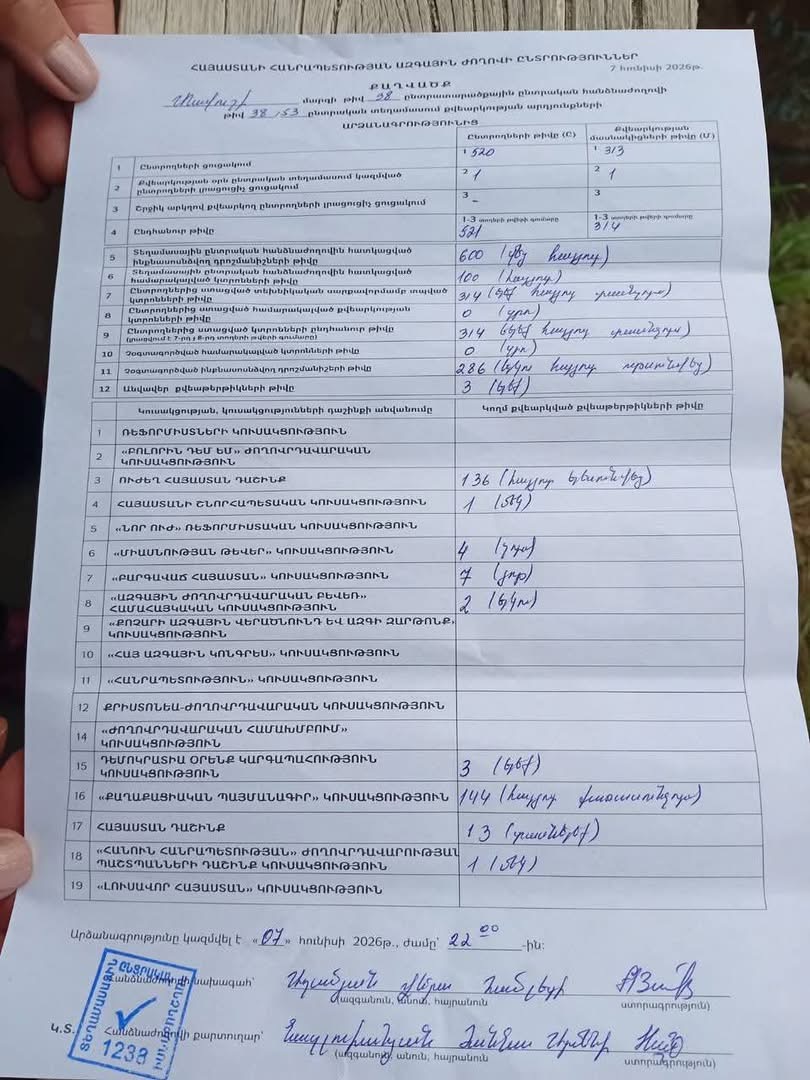 ՀԱՅԱՍՏԱՆԻ ՀԱՆՐԱՊԵՏՈՒԹՅԱՆ ԱԶԳԱՅԻՆ ԺՈՂՈՎԻ ԸՆՏՐՈՒԹՅՈՒՆՆԵՐ
7 հունիսի 2026թ.
ՔԱՂՎԱԾՔ
Տավուշի մարզի թիվ 38 ընտրատարածքային ընտրական հանձնաժողովի
թիվ 38/53 ընտրական տեղամասում քվեարկության արդյունքների
ԱՐՁԱՆԱԳՐՈՒԹՅՈՒՆԻՑ
Ընտրողների թիվը (Ը) Քվեարկության մասնակիցների թիվը (Մ)
1 Ընտրողների ցուցակում 1 520 1 313
2 Քվեարկության օրն ընտրական տեղամասում կազմված ընտրողների լրացուցիչ ցուցակում 2 1 2 1
3 Շրջիկ արկղով քվեարկող ընտրողների լրացուցիչ ցուցակում 3 - 3
4 Ընդհանուր թիվը 1-3 տողերի թվերի գումարը 521 1-3 տողերի թվերի գումարը 314
5 Տեղամասային ընտրական հանձնաժողովին հատկացված ինքնասոսնձվող դրոշմանիշների թիվը 600 (վեց հարյուր)
6 Տեղամասային ընտրական հանձնաժողովին հատկացված համարակալված կտրոնների թիվը 100 (հարյուր)
7 Ընտրողներից ստացված տեխնիկական սարքավորմամբ տպված կտրոնների թիվը 314 (երեք հարյուր տասնչորս)
8 Ընտրողներից ստացված համարակալված քվեարկության կտրոնների թիվը 0 (զրո)
9 Ընտրողներից ստացված կտրոնների ընդհանուր թիվը (լրացվում է 7-րդ և 8-րդ տողերի թվերի գումարը) 314 երեք հարյուր տասնչորս)
10 Չօգտագործված համարակալված կտրոնների թիվը 0 (զրո)
11 Չօգտագործված ինքնասոսնձվող դրոշմանիշերի թիվը 286 (երկու հարյուր ութսունվեց)
12 Անվավեր քվեաթերթիկների թիվը 3 (երեք)
Կուսակցության, կուսակցությունների դաշինքի անվանումը Կողմ քվեարկված քվեաթերթիկների թիվը
1 ՌԵՖՈՐՄԻՍՏՆԵՐԻ ԿՈՒՍԱԿՑՈՒԹՅՈՒՆ
2 «ԲՈԼՈՐԻՆ ԴԵՄ ԵՄ» ԺՈՂՈՎՐԴԱՎԱՐԱԿԱՆ ԿՈՒՍԱԿՑՈՒԹՅՈՒՆ
3 ՈՒԺԵՂ ՀԱՅԱՍՏԱՆ ԴԱՇԻՆՔ 136 (հարյուր երեսունվեց)
4 ՀԱՅԱՍՏԱՆԻ ՇՆՈՐՀԱՊԵՏԱԿԱՆ ԿՈՒՍԱԿՑՈՒԹՅՈՒՆ 1 (մեկ)
5 «ՆՈՐ ՈՒԺ» ՌԵՖՈՐՄԻՍՏԱԿԱՆ ԿՈՒՍԱԿՑՈՒԹՅՈՒՆ
6 «ՄԻԱՍՆՈՒԹՅԱՆ ԹԵՎԵՐ» ԿՈՒՍԱԿՑՈՒԹՅՈՒՆ 4 (չորս)
7 «ԲԱՐԳԱՎԱՃ ՀԱՅԱՍՏԱՆ» ԿՈՒՍԱԿՑՈՒԹՅՈՒՆ 7 (յոթ)
8 «ԱԶԳԱՅԻՆ ԺՈՂՈՎՐԴԱՎԱՐԱԿԱՆ ԲԵՎԵՌ» ՀԱՄԱՀԱՅԿԱԿԱՆ ԿՈՒՍԱԿՑՈՒԹՅՈՒՆ 2 (երկու)
9 «ՔՈՉԱՐԻ ԱԶԳԱՅԻՆ ՎԵՐԱԾՆՈՒՆԴ ԵՎ ԱԶԳԻ ԶԱՐԹՈՆՔ» ԿՈՒՍԱԿՑՈՒԹՅՈՒՆ
10 «ՀԱՅ ԱԶԳԱՅԻՆ ԿՈՆԳՐԵՍ» ԿՈՒՍԱԿՑՈՒԹՅՈՒՆ
11 «ՀԱՆՐԱՊԵՏՈՒԹՅՈՒՆ» ԿՈՒՍԱԿՑՈՒԹՅՈՒՆ
12 ՔՐԻՍՏՈՆԵԱ-ԺՈՂՈՎՐԴԱՎԱՐԱԿԱՆ ԿՈՒՍԱԿՑՈՒԹՅՈՒՆ
14 «ԺՈՂՈՎՐԴԱՎԱՐԱԿԱՆ ՀԱՄԱԽՄԲՈՒՄ» ԿՈՒՍԱԿՑՈՒԹՅՈՒՆ
15 ԴԵՄՈԿՐԱՏԻԱ ՕՐԵՆՔ ԿԱՐԳԱՊԱՀՈՒԹՅՈՒՆ ԿՈՒՍԱԿՑՈՒԹՅՈՒՆ 3 (երեք)
16 «ՔԱՂԱՔԱՑԻԱԿԱՆ ՊԱՅՄԱՆԱԳԻՐ» ԿՈՒՍԱԿՑՈՒԹՅՈՒՆ 144 (հարյուր քառասունչորս)
17 ՀԱՅԱՍՏԱՆ ԴԱՇԻՆՔ 13 (տասներեք)
18 «ՀԱՆՈՒՆ ՀԱՆՐԱՊԵՏՈՒԹՅԱՆ» ԺՈՂՈՎՐԴԱՎԱՐՈՒԹՅԱՆ ՊԱՇՏՊԱՆՆԵՐԻ ԴԱՇԻՆՔ ԿՈՒՍԱԿՑՈՒԹՅՈՒՆ 1 (մեկ)
19 «ԼՈՒՍԱՎՈՐ ՀԱՅԱՍՏԱՆ» ԿՈՒՍԱԿՑՈՒԹՅՈՒՆ
Արձանագրությունը կազմվել է «07» հունիսի 2026թ., ժամը՝ 22 00 -ին:
Հանձնաժողովի նախագահ՝
(ազգանուն, անուն, հայրանուն) ստորագրություն)
Կ.Տ. Հանձնաժողովի քարտուղար՝
(ազգանունը, անուն, հայրանուն ստորագրություն)
ՏԵՂԱՄԱՍԱՅԻՆ ԸՆՏՐԱԿԱՆ
1238